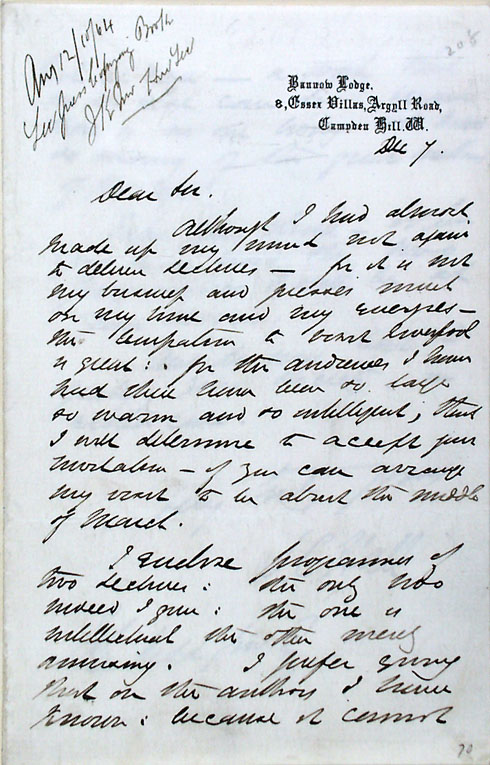 Bannow Lodge,
8, Essex Villas, Argyll Road,
Campden Hill. W.
Dec 7.
Dear Sir.
Although I had almost
made up my mind not again
to deliver Lectures — for it is not
my business and presses much
on my time and my energies —
the temptation to visit Liverpool
is great: for the audiences I have
had there have been so large
so warm and so intelligent, that
I will determine to accept your
invitation — if you can arrange
my visit to be about the middle
of March.
I enclose programmes of
two Lectures: the only two
indeed I give: the one is
intellectual the other merely
amusing. I prefer giving
that on the authors I have
known: because it cannot
70